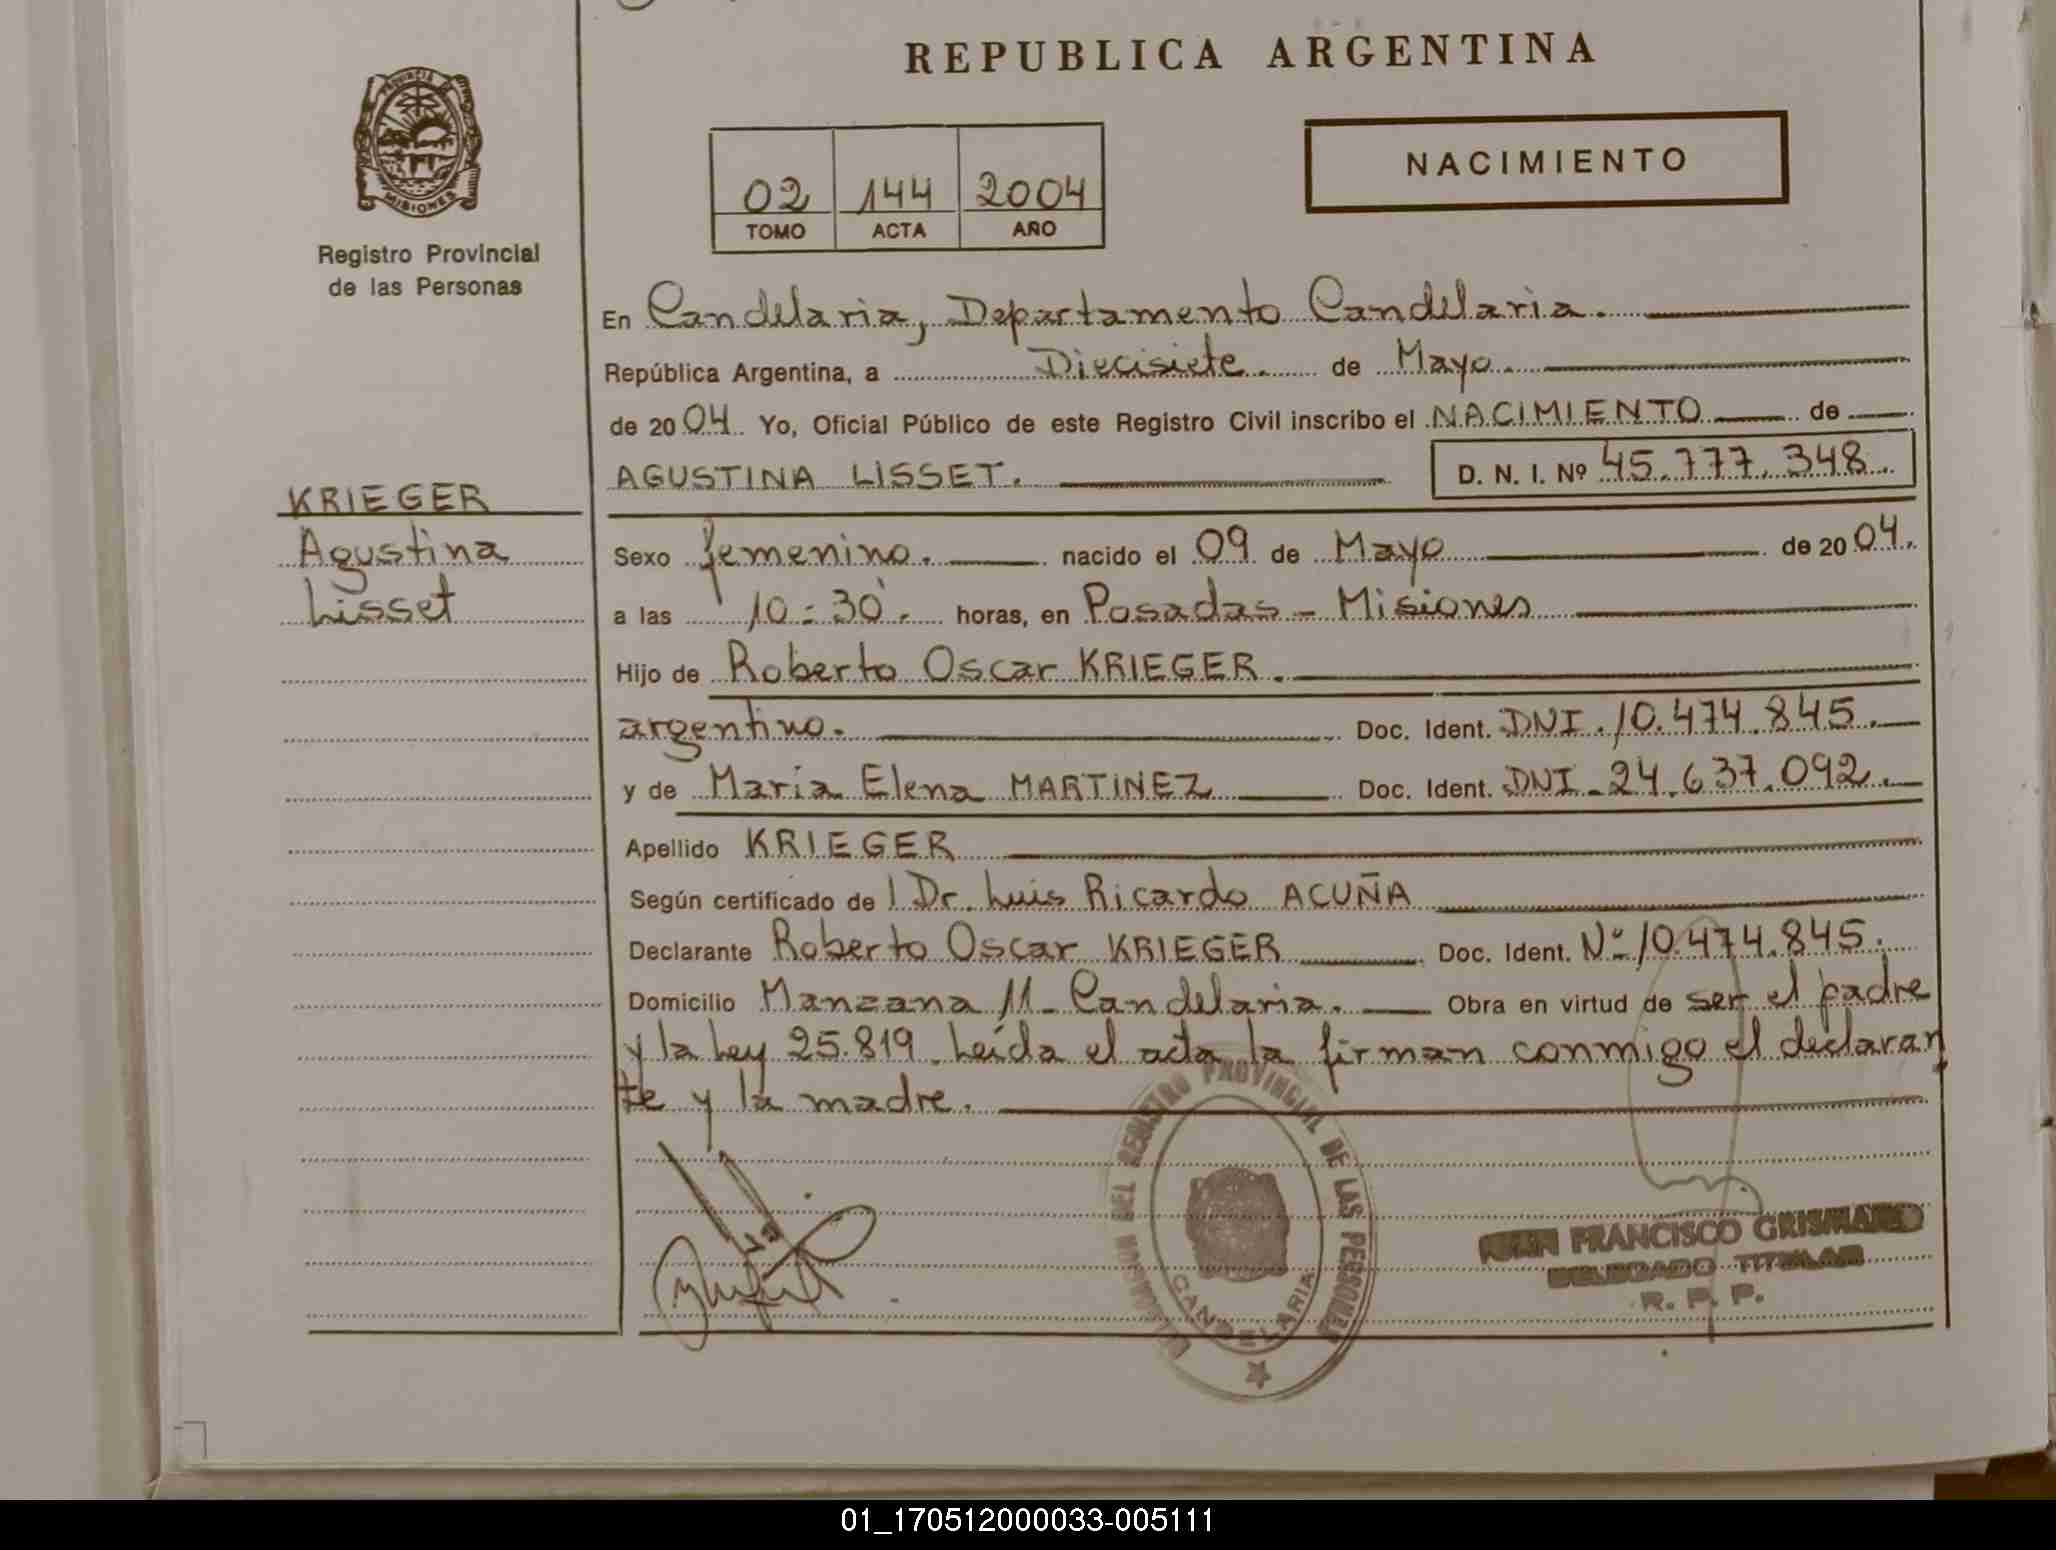 REPUBLICA ARGENTINA
PROVINCIA
MISIONES
Registro Provincial
de las Personas
NACIMIENTO
02 144 2004
TOMO ACTA AÑO
En Candelaria, Departamento Candelaria.
República Argentina, a Diecisiete. de Mayo.
de 2004. Yo, Oficial Público de este Registro Civil inscribo el NACIMIENTO de
AGUSTINA LISSET. D. N. I. Nº 45.777.348.
KRIEGER
Agustina
Lisset
Sexo femenino. nacido el 09 de Mayo de 2004.
a las 10:30. horas, en Posadas - Misiones
Hijo de Roberto Oscar KRIEGER.
argentino. Doc. Ident. DNI. 10.474.845.
y de María Elena MARTINEZ Doc. Ident. DNI - 24.637.092.
Apellido KRIEGER
Según certificado de l Dr. Luis Ricardo ACUÑA
Declarante Roberto Oscar KRIEGER Doc. Ident. Nº 10.474.845.
Domicilio Manzana 11 - Candelaria. Obra en virtud de ser el padre
y la Ley 25.819. Leída el acta la firman conmigo el declaran
te y la madre.
DELEGACION DEL REGISTRO PROVINCIAL DE LAS PERSONAS
CANDELARIA
FRANCISCO
DELEGADO TITULAR
R. P. P.
01_170512000033-005111